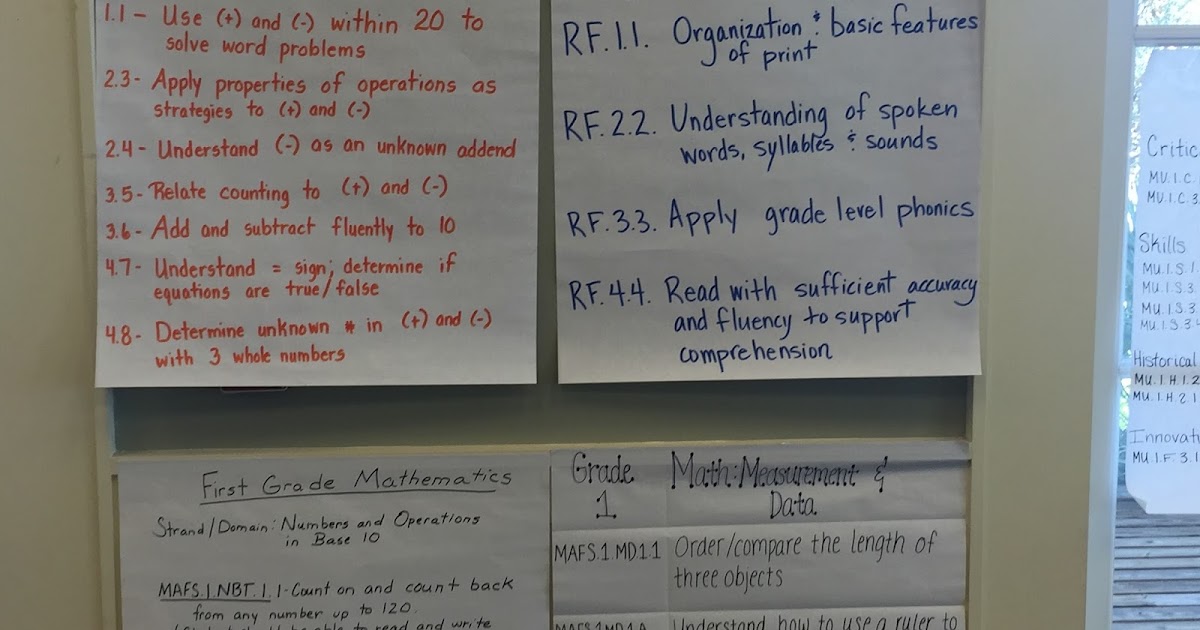 1.1 - Use (+) and (-) within 20 to
solve word problems
2.3 - Apply properties of operations as
strategies to (+) and (-)
2.4 - Understand (-) as an unknown addend
3.5 - Relate counting to (+) and (-)
3.6 - Add and subtract fluently to 10
4.7 - Understand = sign; determine if
equations are true/false
4.8 - Determine unknown # in (+) and (-)
with 3 whole numbers
RF.1.1. Organization & basic features
of print
RF.2.2. Understanding of spoken
words, syllables & sounds
RF.3.3. Apply grade level phonics
RF.4.4. Read with sufficient accuracy
and fluency to support
comprehension
First Grade Mathematics
Strand/Domain: Numbers and Operations
in Base 10
MAFS.1.NBT.1.1-Count on and count back
from any number up to 120.
read and write
Grade
1.
Math: Measurement &
Data
MAFS.1.MD1.1 Order/compare the length of
three objects
Understand how to use a ruler to
Critic
MU.1.C.
MU.1.C.3
Skills
MU.1.S.1.
MU.1.S.3
MU.1.S.3.
MU.1.S.3.
Historical
MU.1.H.1.2
MU.1.H.2.1
Innovati
MU.1.F.3.1